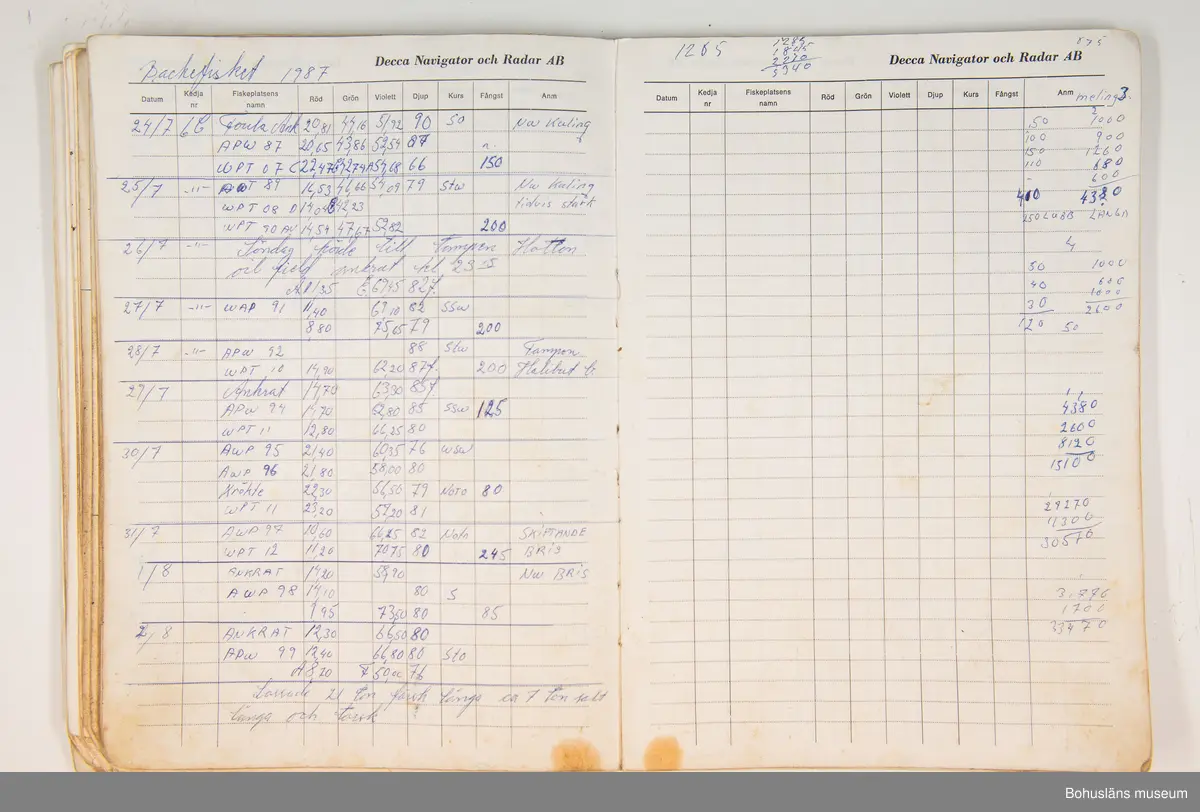 Backefisket 1987
Decca Navigator och Radar AB
Datum Kedja nr Fiskeplatsens namn Röd Grön Violett Djup Kurs Fångst Anm
24/7 6C 20,81 44,16 51,92 90 SO NW Kuling
APW 87 20,65 43,86 52,54 87
WPT 07 66 150
25/7 -"- 89 16,53 46,66 54,09 79 Stw NW Kuling
WPT 08 42,23 tidvis stark
WPT 90 14,54 47,67 52,82 200
26/7 -"- Söndag körde till Tampen
och ankrat kl 23
27/7 -"- WAP 91 11,40 67,10 82 SSW
8,80 75,05 79 200
28/7 -"- APW 92 88 Stw Tampen
WPT 10 14,90 62,20 87 200
29/7 Ankrat 14,70 63,30 85
APW 94 14,70 62,80 85 SSW 125
WPT 11 12,80 66,25 80
30/7 AWP 95 21,40 60,35 76 WSW
AWP 96 21,80 58,00 80
Kräkte 22,30 56,50 79 NOTO 80
WPT 11 23,20 57,20 81
31/7 AWP 97 10,60 66,25 82 Noto SKIFTANDE
WPT 12 11,20 70,75 80 245 BRIS
1/8 ANKRAT 14,20 58,90 NW BRIS
AWP 98 14,10 80 S
1,95 73,50 80 85
2/8 ANKRAT 12,30 66,50 80
APW 99 12,40 66,80 80 Sto
A 8,20 50,00 76
Lossade 21 ton färsk långa ca 7 ton salt
långa och torsk
1265
1285
1845
2270
5340
875
Decca Navigator och Radar AB
Datum Kedja nr Fiskeplatsens namn Röd Grön Violett Djup Kurs Fångst Anm
3
50 1000
100 900
150 1260
110 680
- 600
410 4380
250 LUBB LÅNGA
4
50 1000
40 600
30 1000
120 2600
50
4380
2600
8120
15100
29270
11300
30570
31770
1700
33470
Bohusläns museum